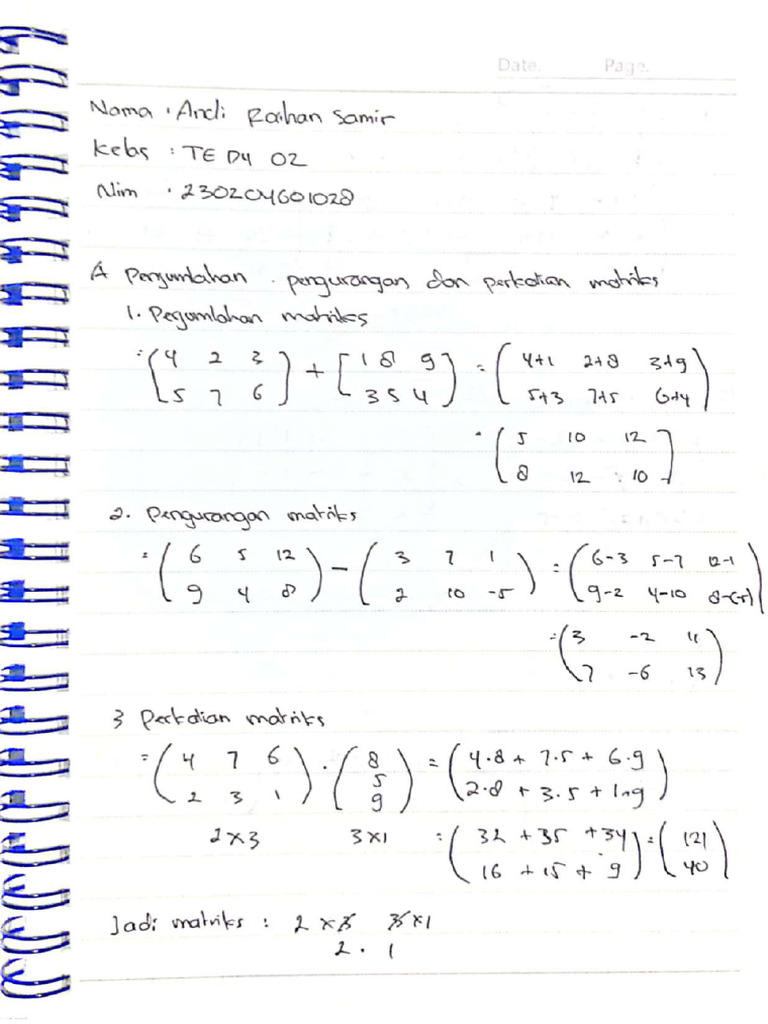 Date. Page.
Nama : Andi Raihan Samir
Kelas : TE D4 02
Nim : 230204601028
A Penjumlahan . pengurangan dan perkalian matriks
1. Pejumlahan matriks
= (4 2 3] + [1 8 9) = (4+1 2+8 3+9)
(5 7 6] [3 5 4) (5+3 7+5 6+4)
= (5 10 12]
(8 12 10]
2. Pengurangan matriks
= (6 5 12) - (3 7 1) = (6-3 5-7 12-1)
(9 4 8) (2 10 -5) (9-2 4-10 8-(-5))
= (3 -2 11)
(7 -6 13)
3 Perkalian matriks
= (4 7 6) . (8) = (4.8 + 7.5 + 6.9)
(2 3 1) (5) (2.8 + 3.5 + 1.9)
(9)
2x3 3x1 = (32 + 35 + 34) = (121)
(16 + 15 + 9) (40)
Jadi matriks : 2 x 3 3x1
2 . 1